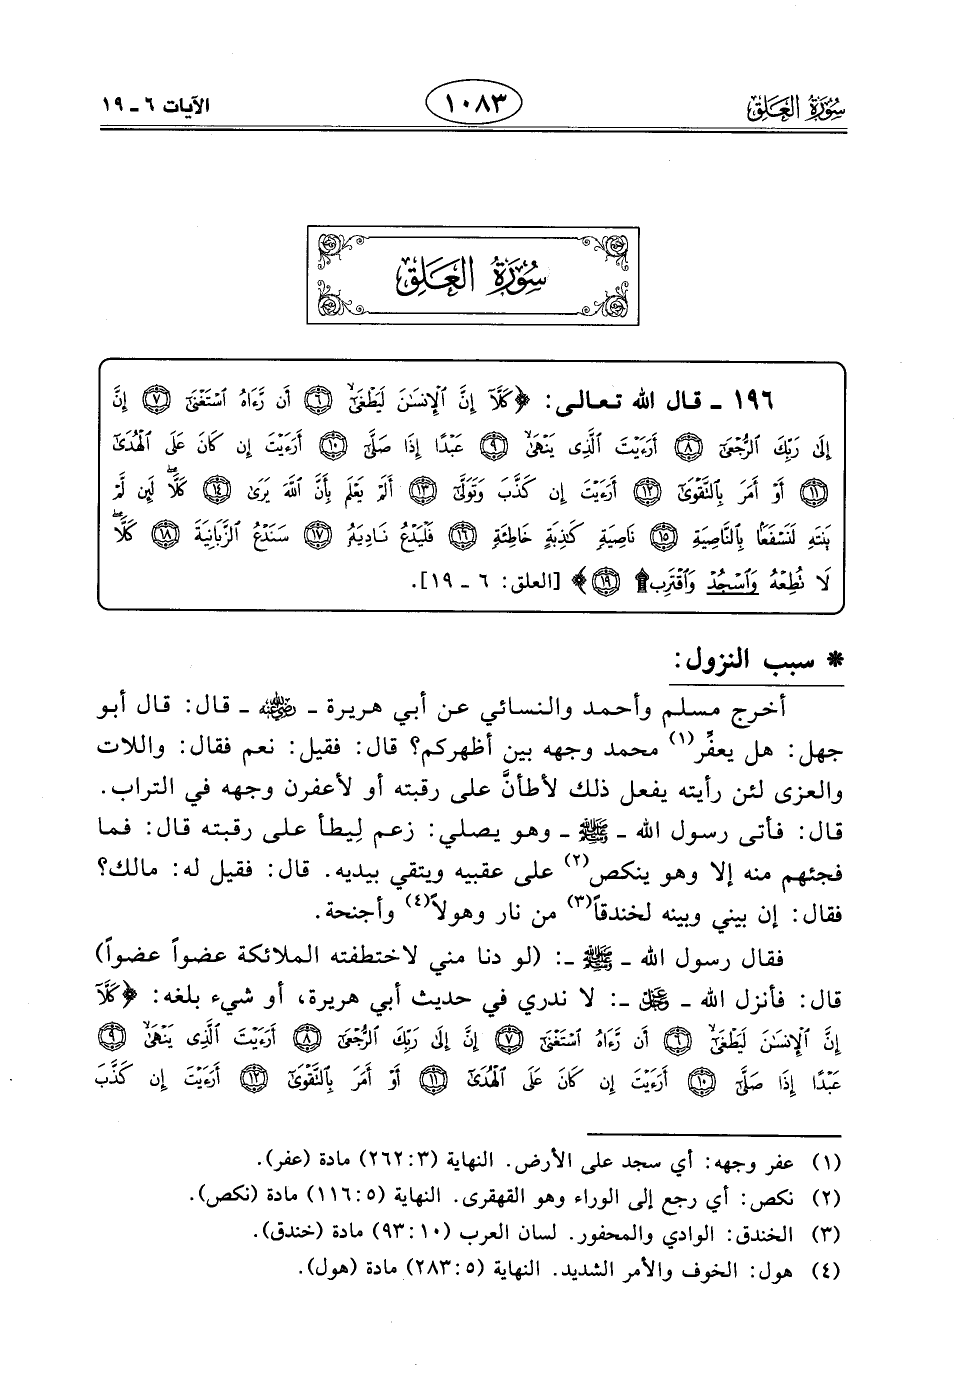 سُورَةُ العَلَق
١٠٨٣
الآيات ٦ ـ ١٩
سُورَةُ العَلَقِ
١٩٦ ـ قال الله تعالى: ﴿كَلَّآ إِنَّ ٱلْإِنسَـٰنَ لَيَطْغَىٰٓ ۙ ⑥ أَن رَّءَاهُ ٱسْتَغْنَىٰٓ ⑦ إِنَّ
إِلَىٰ رَبِّكَ ٱلرُّجْعَىٰٓ ⑧ أَرَءَيْتَ ٱلَّذِى يَنْهَىٰ ۙ ⑨ عَبْدًا إِذَا صَلَّىٰٓ ⑩ أَرَءَيْتَ إِن كَانَ عَلَى ٱلْهُدَىٰٓ
⑪ أَوْ أَمَرَ بِٱلتَّقْوَىٰٓ ⑫ أَرَءَيْتَ إِن كَذَّبَ وَتَوَلَّىٰٓ ⑬ أَلَمْ يَعْلَم بِأَنَّ ٱللَّهَ يَرَىٰ ⑭ كَلَّا ۖ لَئِن لَّمْ
يَنتَهِ لَنَسْفَعًۢا بِٱلنَّاصِيَةِ ⑮ نَاصِيَةٍ كَـٰذِبَةٍ خَاطِئَةٍ ⑯ فَلْيَدْعُ نَادِيَهُۥ ⑰ سَنَدْعُ ٱلزَّبَانِيَةَ ⑱ كَلَّا ۖ
لَا تُطِعْهُ وَٱسْجُدْ وَٱقْتَرِب ۩ ⑲﴾ [العلق: ٦ ـ ١٩].
* سبب النزول:
أخرج مسلم وأحمد والنسائي عن أبي هريرة ـ رضي الله عنه ـ قال: قال أبو
جهل: هل يعفِّر(١) محمد وجهه بين أظهركم؟ قال: فقيل: نعم فقال: واللات
والعزى لئن رأيته يفعل ذلك لأطأنَّ على رقبته أو لأعفرن وجهه في التراب.
قال: فأتى رسول الله ـ ﷺ ـ وهو يصلي: زعم لِيطأ على رقبته قال: فما
فجئهم منه إلا وهو ينكص(٢) على عقبيه ويتقي بيديه. قال: فقيل له: مالك؟
فقال: إن بيني وبينه لخندقاً(٣) من نار وهولاً(٤) وأجنحة.
فقال رسول الله ـ ﷺ ـ: (لو دنا مني لاختطفته الملائكة عضواً عضواً)
قال: فأنزل الله ـ عز وجل ـ: لا ندري في حديث أبي هريرة، أو شيء بلغه: ﴿كَلَّآ
إِنَّ ٱلْإِنسَـٰنَ لَيَطْغَىٰٓ ۙ ⑥ أَن رَّءَاهُ ٱسْتَغْنَىٰٓ ⑦ إِنَّ إِلَىٰ رَبِّكَ ٱلرُّجْعَىٰٓ ⑧ أَرَءَيْتَ ٱلَّذِى يَنْهَىٰ ۙ ⑨
عَبْدًا إِذَا صَلَّىٰٓ ⑩ أَرَءَيْتَ إِن كَانَ عَلَى ٱلْهُدَىٰٓ ⑪ أَوْ أَمَرَ بِٱلتَّقْوَىٰٓ ⑫ أَرَءَيْتَ إِن كَذَّبَ
(١) عفر وجهه: أي سجد على الأرض. النهاية (٣: ٢٦٢) مادة (عفر).
(٢) نكص: أي رجع إلى الوراء وهو القهقرى. النهاية (٥: ١١٦) مادة (نكص).
(٣) الخندق: الوادي والمحفور. لسان العرب (١٠: ٩٣) مادة (خندق).
(٤) هول: الخوف والأمر الشديد. النهاية (٥: ٢٨٣) مادة (هول).